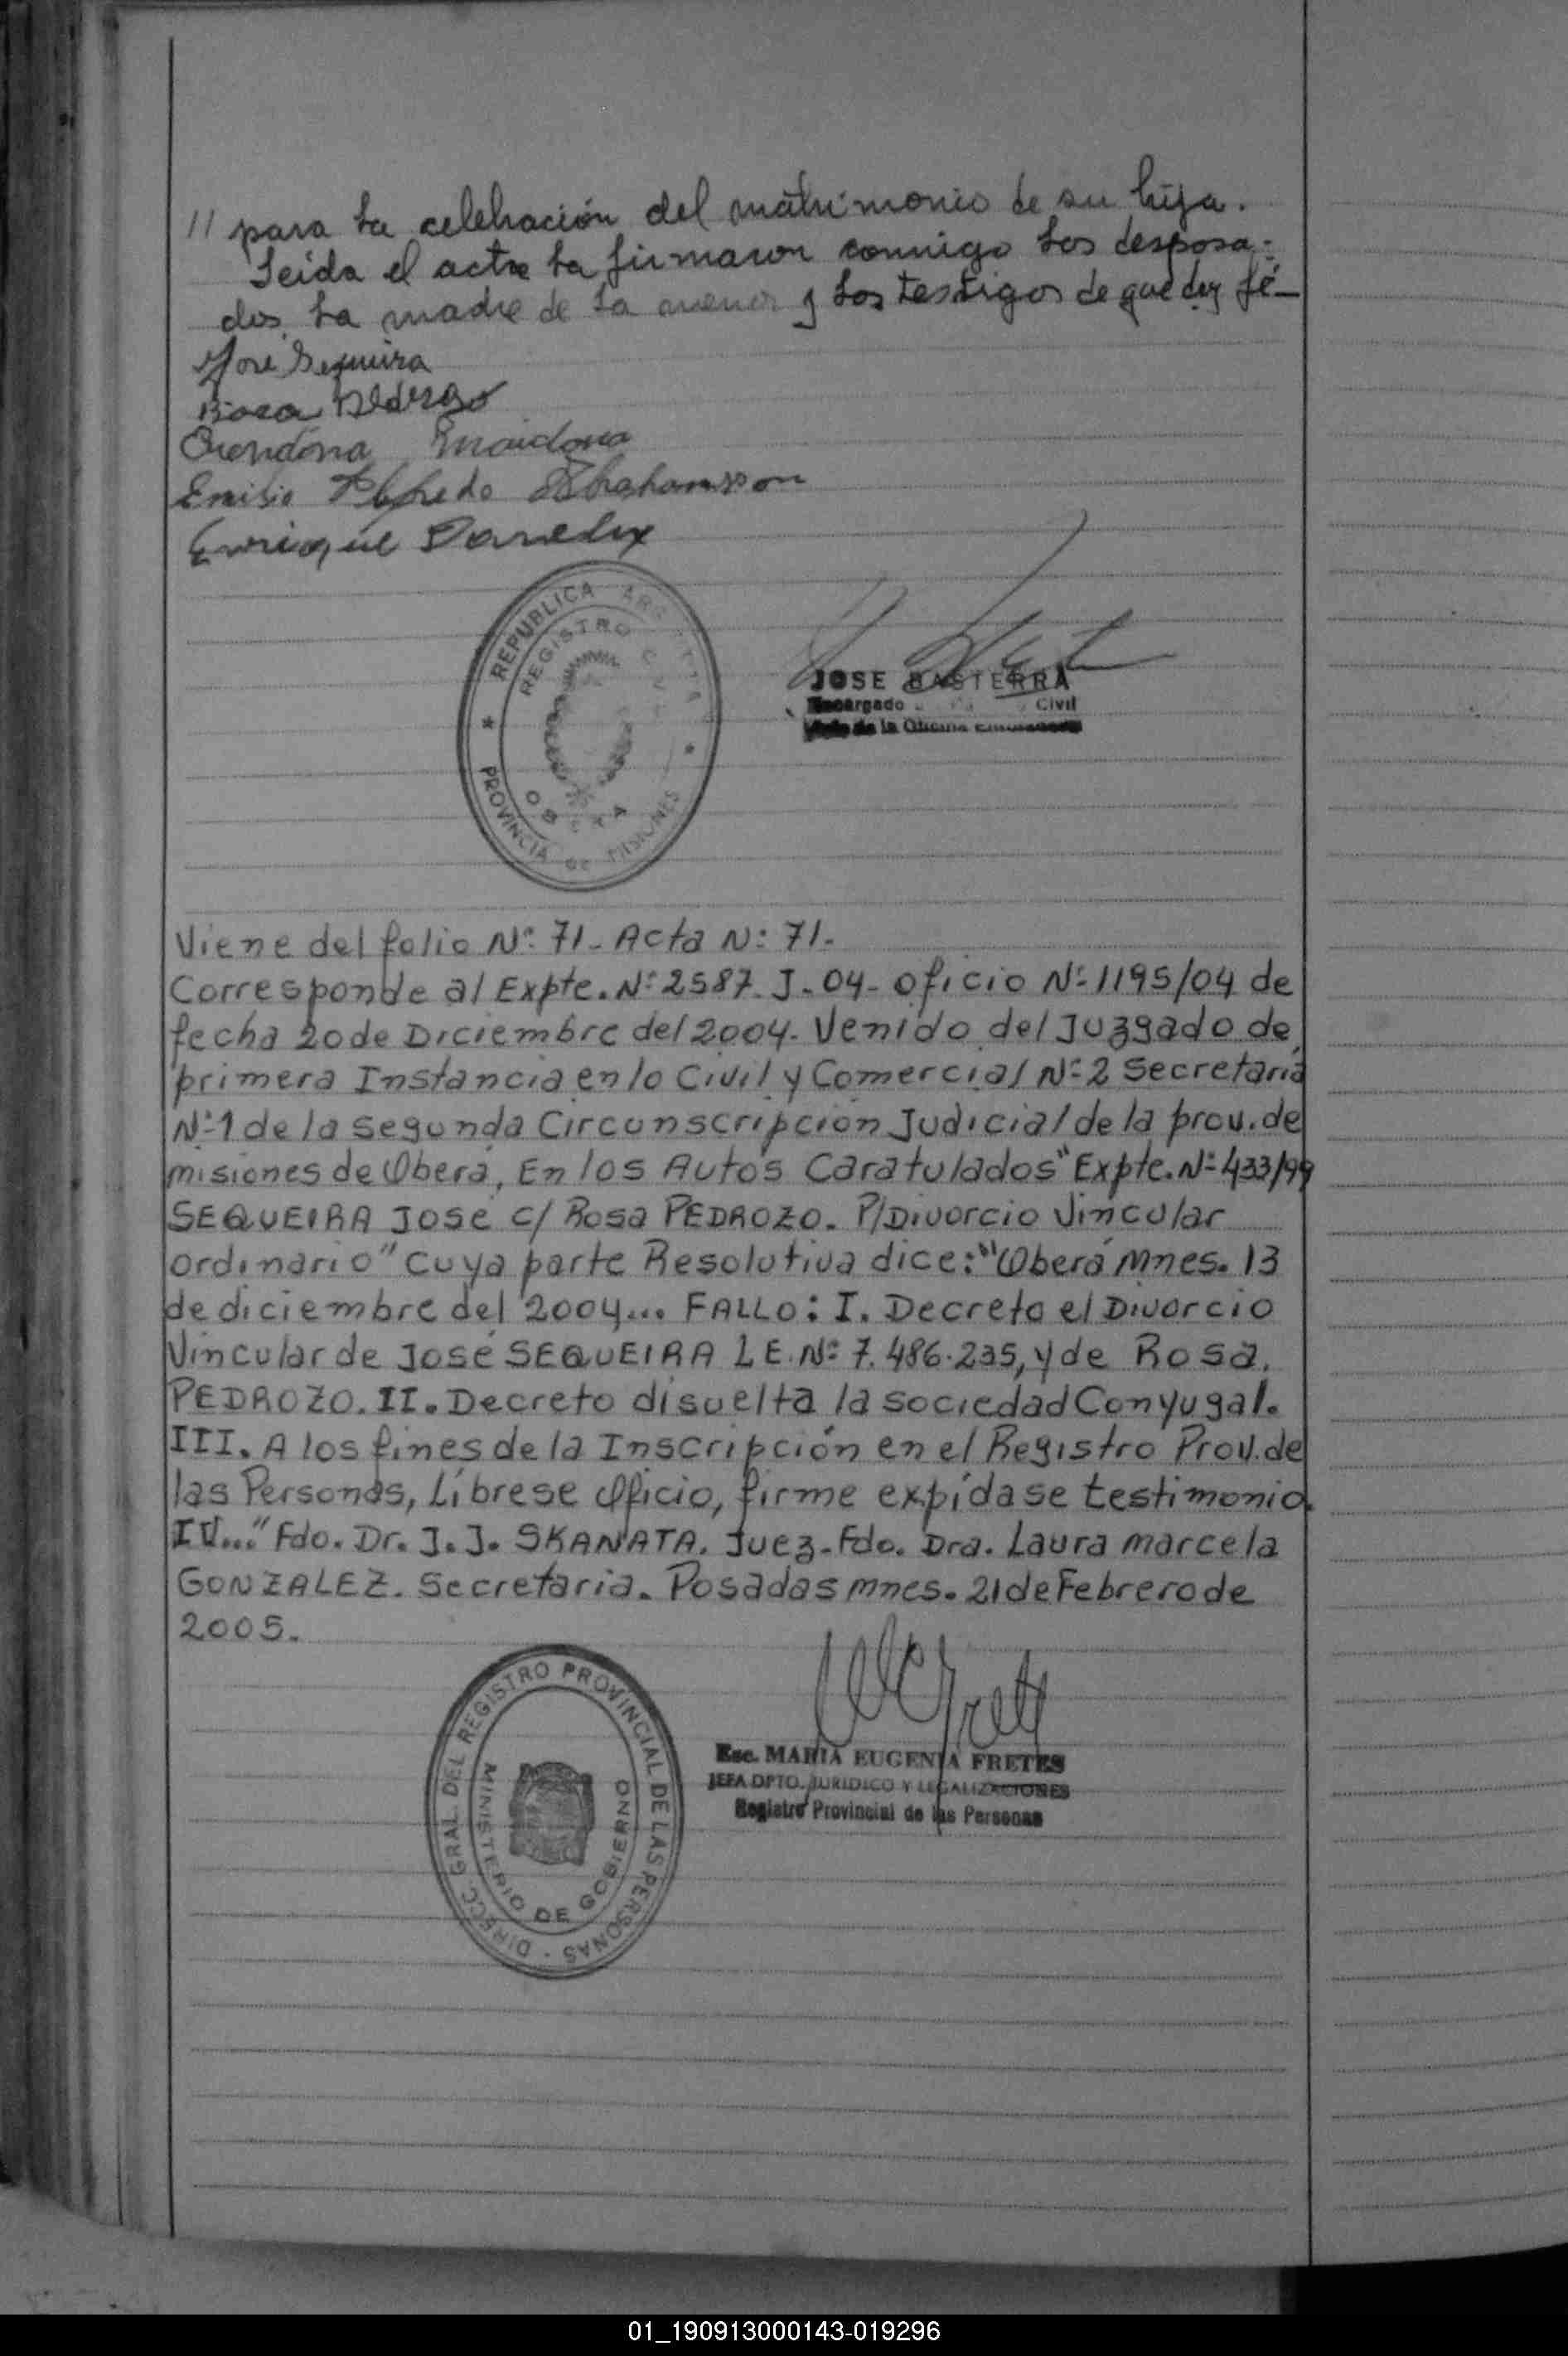 // para la celebración del matrimonio de su hija.
Leida el acta la firmaron conmigo los desposa-
dos, la madre de la menor y los testigos de que doy fé-
José Sequeira
Rosa Pedrozo
Emilio Alfredo Abrahamsson
Enrique
REPUBLICA ARGENTINA
REGISTRO CIVIL
OBERA
PROVINCIA DE MISIONES
JOSE BASTERRA
Encargado Civil
Jefe de la Oficina
Viene del folio Nº 71- Acta Nº 71-
Corresponde al Expte. Nº 2587. J-04- oficio Nº 1195/04 de
fecha 20 de Diciembre del 2004- Venido del Juzgado de
primera Instancia en lo Civil y Comercial Nº 2 Secretaría
Nº 1 de la segunda Circunscripción Judicial de la prov. de
misiones de Oberá, En los Autos Caratulados "Expte. Nº 433/99
SEQUEIRA JOSE C/ Rosa PEDROZO. P/Divorcio Vincular
ordinario" cuya parte Resolutiva dice: "Oberá Mnes. 13
de diciembre del 2004... FALLO: I. Decreto el Divorcio
Vincular de JOSÉ SEQUEIRA L E. Nº 7.486.235, y de Rosa.
PEDROZO. II. Decreto disuelta la sociedad Conyugal.
III. A los fines de la Inscripción en el Registro Prov. de
las Personas, Líbrese oficio, firme expídase testimonio.
IV..." Fdo. Dr. J. J. SKANATA. Juez- Fdo. Dra. Laura marcela
GONZALEZ. Secretaria. Posadas mnes. 21 de Febrero de
2005.
DIRECC. GRAL. DEL REGISTRO PROVINCIAL DE LAS PERSONAS
MINISTERIO DE GOBIERNO
Esc. MARIA EUGENIA FRETES
JEFA DPTO. JURIDICO Y LEGALIZACIONES
Registro Provincial de las Personas
01_190913000143-019296